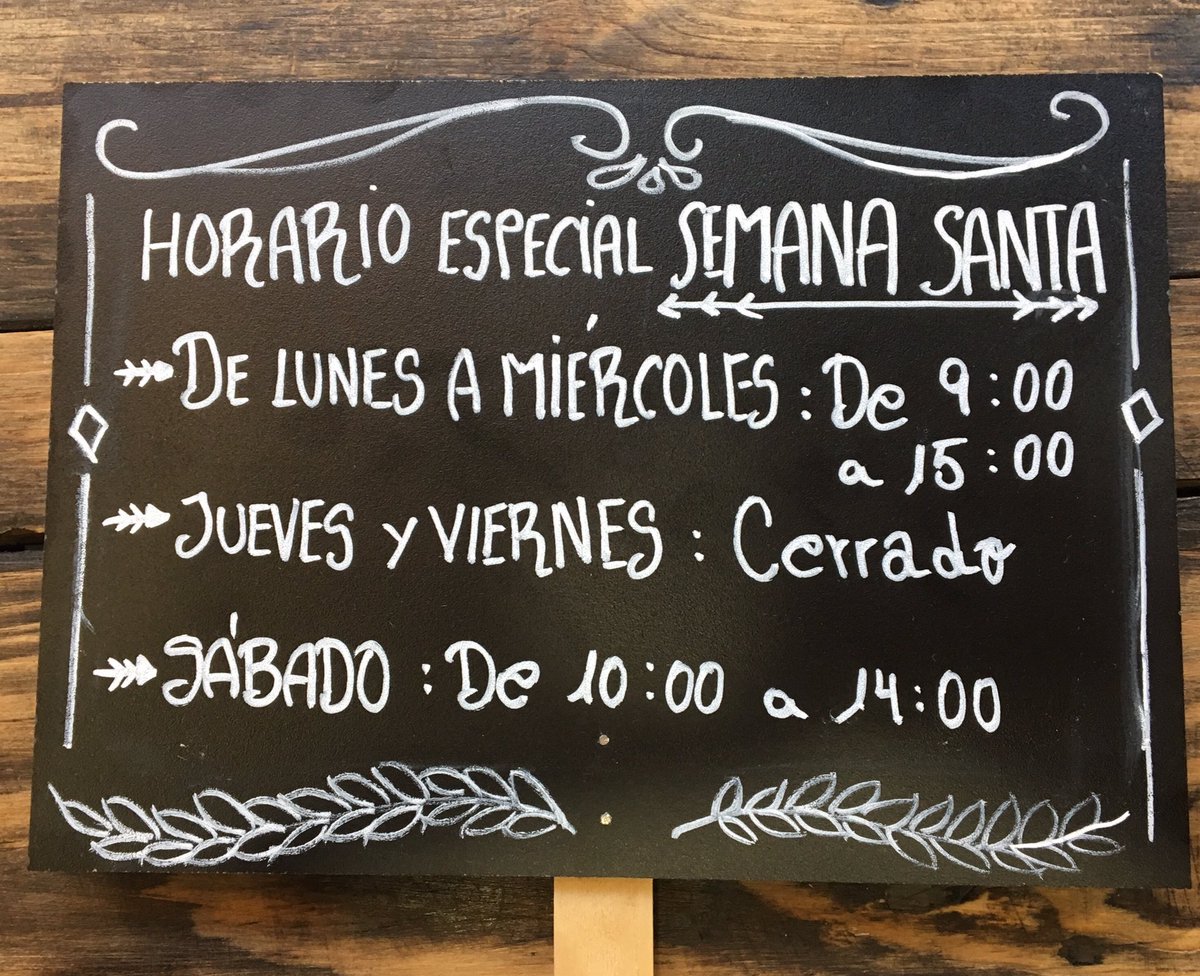 HORARIO ESPECIAL SEMANA SANTA
DE LUNES A MIÉRCOLES : De 9:00
a 15:00
JUEVES Y VIERNES : Cerrado
SÁBADO : De 10:00 a 14:00